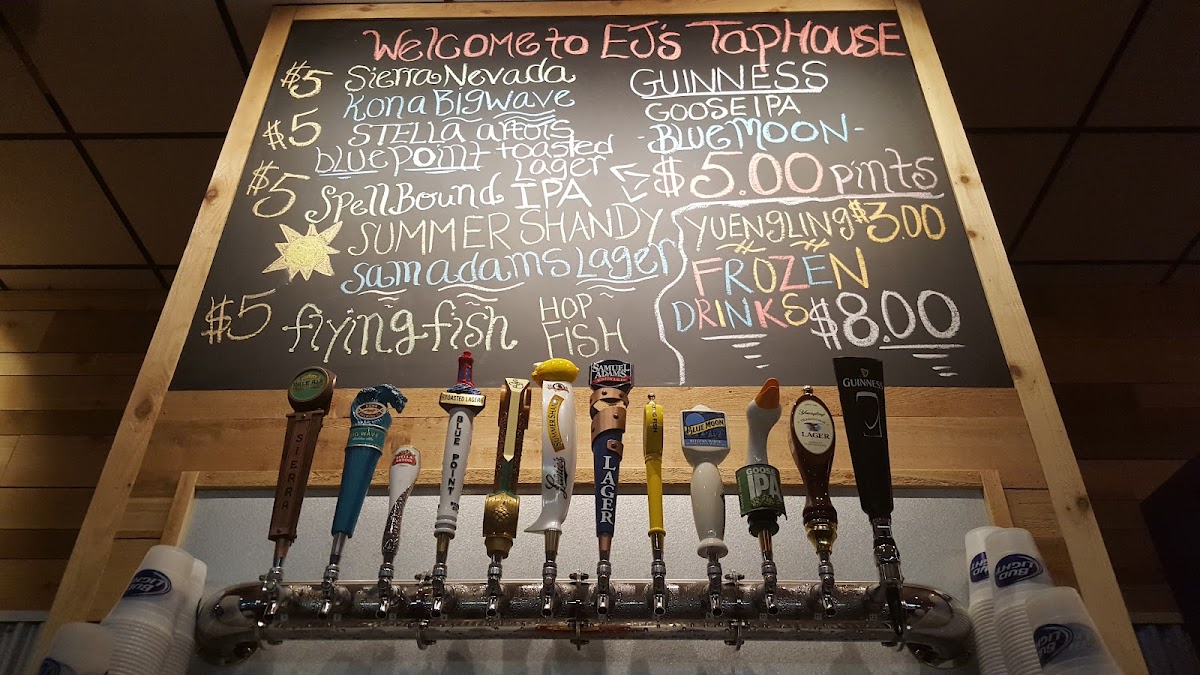 Welcome to EJ's TapHOUSE
$5 Sierra Nevada
Kona Big wave
$5 STELLA artois
blue point toasted
Lager
$5 SpellBound IPA
SUMMER SHANDY
sam adams Lager
$5 flying fish
HOP
FISH
GUINNESS
GOOSE IPA
-BLUE MOON-
$5.00 pints
YUENGLING $3.00
FROZEN
DRINKS $8.00
PALE ALE
SIERRA
STELLA ARTOIS
TOASTED LAGER
BLUE POINT
SUMMER SHANDY
SAMUEL
ADAMS
LAGER
BLUE MOON
GOOSE
IPA
Yuengling
LAGER
GUINNESS
BUD
LIGHT
BUD
LIGHT
BUD
LIGHT